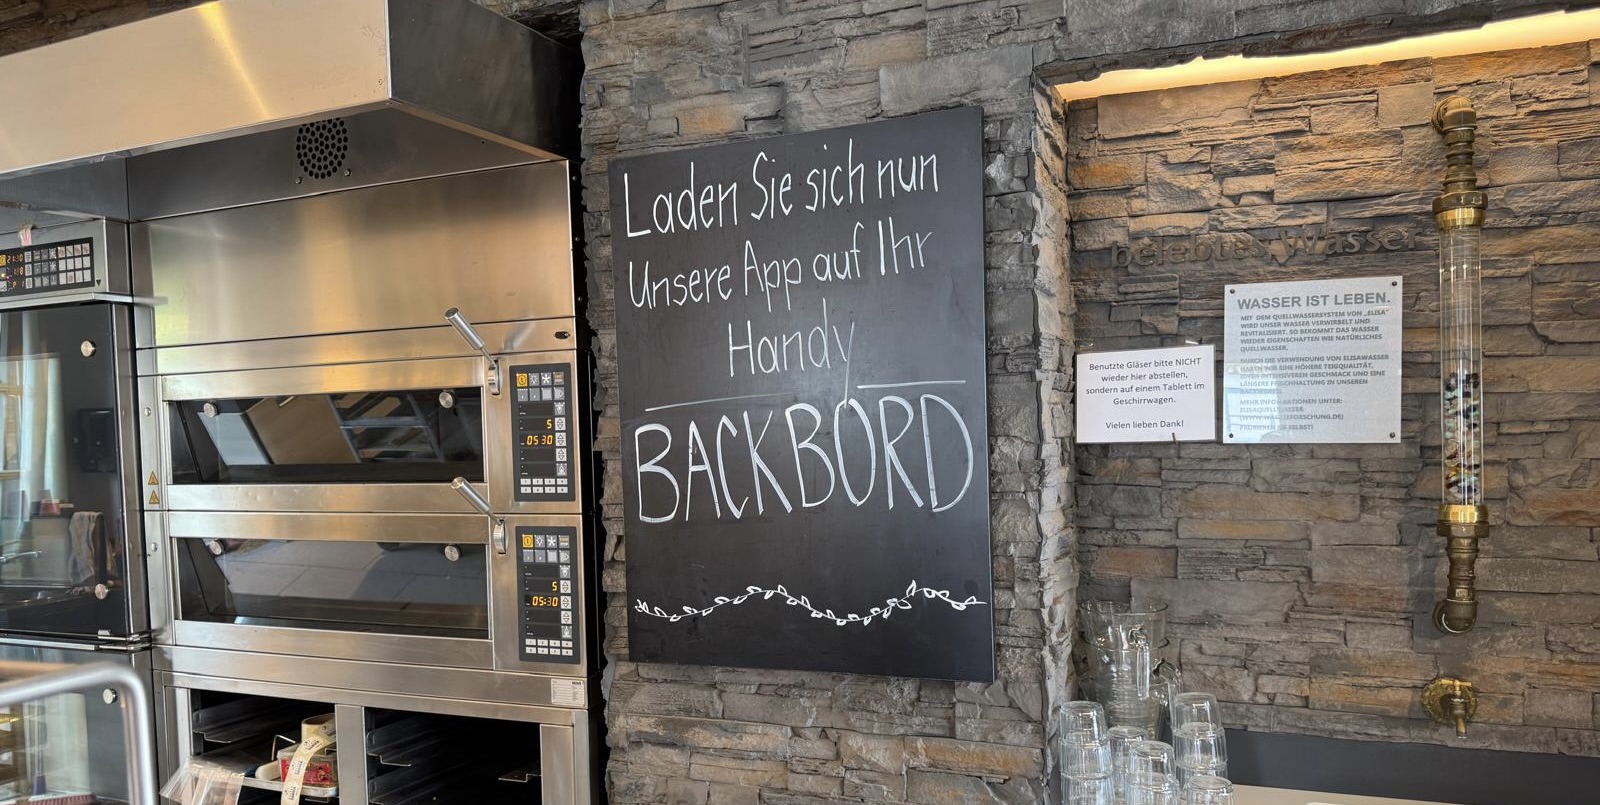 Laden Sie sich nun
Unsere App auf Ihr
Handy
BACKBORD
belebtes Wasser
Benutzte Gläser bitte NICHT
wieder hier abstellen,
sondern auf einem Tablett im
Geschirrwagen.
Vielen lieben Dank!
WASSER IST LEBEN.
MIT DEM QUELLWASSERSYSTEM VON „ELISA"
WIRD UNSER WASSER VERWIRBELT UND
REVITALISIERT. SO BEKOMMT DAS WASSER
WIEDER EIGENSCHAFTEN WIE NATÜRLICHES
QUELLWASSER.
DURCH DIE VERWENDUNG VON ELISAWASSER
HABEN WIR EINE HÖHERE TEIGQUALITÄT,
EINEN INTENSIVEREN GESCHMACK UND EINE
LÄNGERE FRISCHHALTUNG IN UNSEREN
MEHR INFORMATIONEN UNTER:
5
05 30
5
05:30